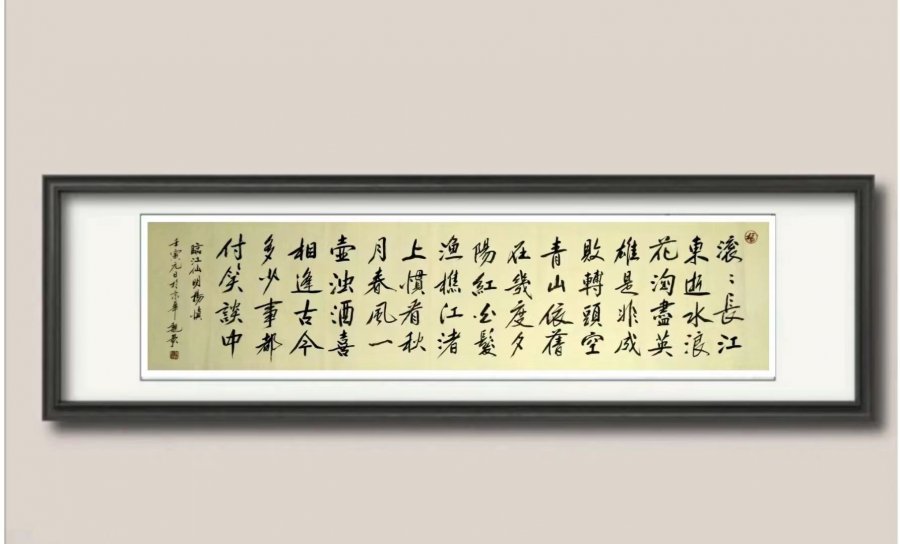 滚〻長江
東逝水浪
花淘盡英
雄是非成
敗轉頭空
青山依舊
在幾度夕
陽紅白髮
漁樵江渚
上慣看秋
月春風一
壺浊酒喜
相逢古今
多少事都
付笑談中
临江仙明楊慎
壬寅元日於京華